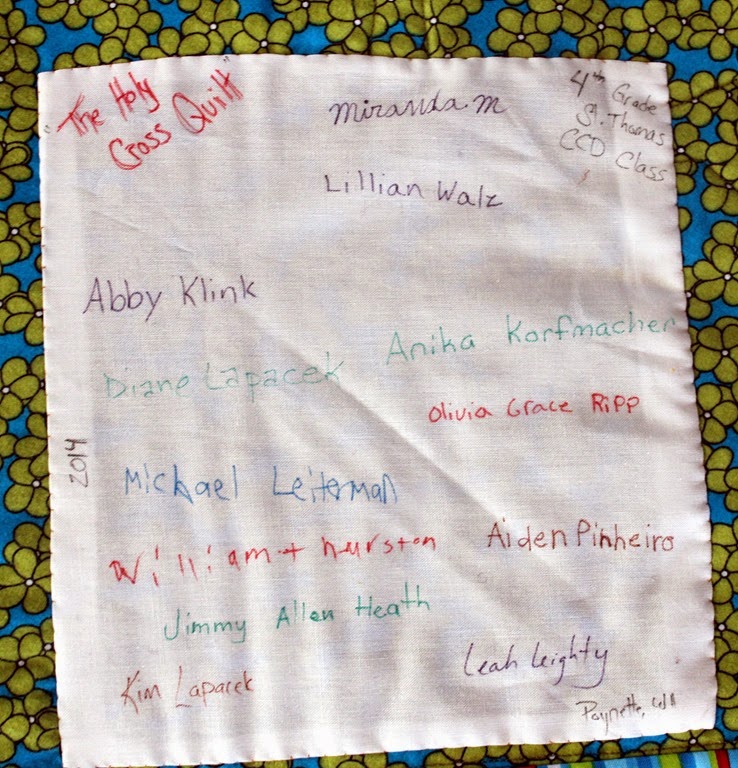 "The Holy
Cross Quilt"
Miranda M
4th Grade
St. Thomas
CCD Class
Lillian Walz
Abby Klink
Anika Korfmacher
Diane Lapacek
Olivia Grace Ripp
2014
Michael Leiterman
William t hurston
Aiden Pinheiro
Jimmy Allen Heath
Leah Leighty
Kim Lapacek
Poynette, WI